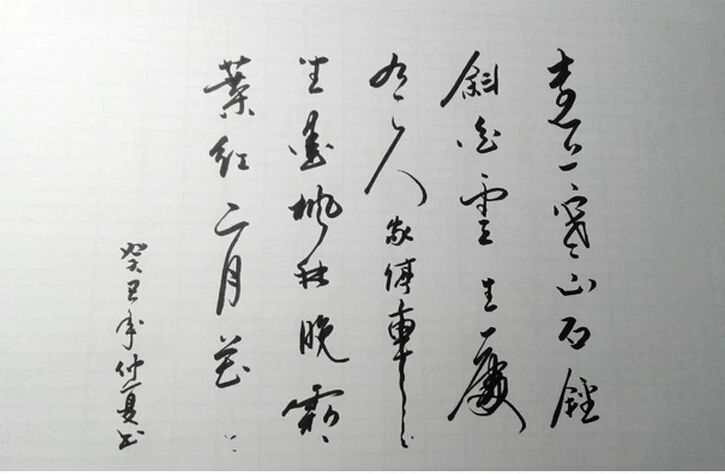 遠上寒山石徑
斜白雲生處
有人家停車
坐愛楓林晚霜
葉紅二月花
癸丑年仲夏书